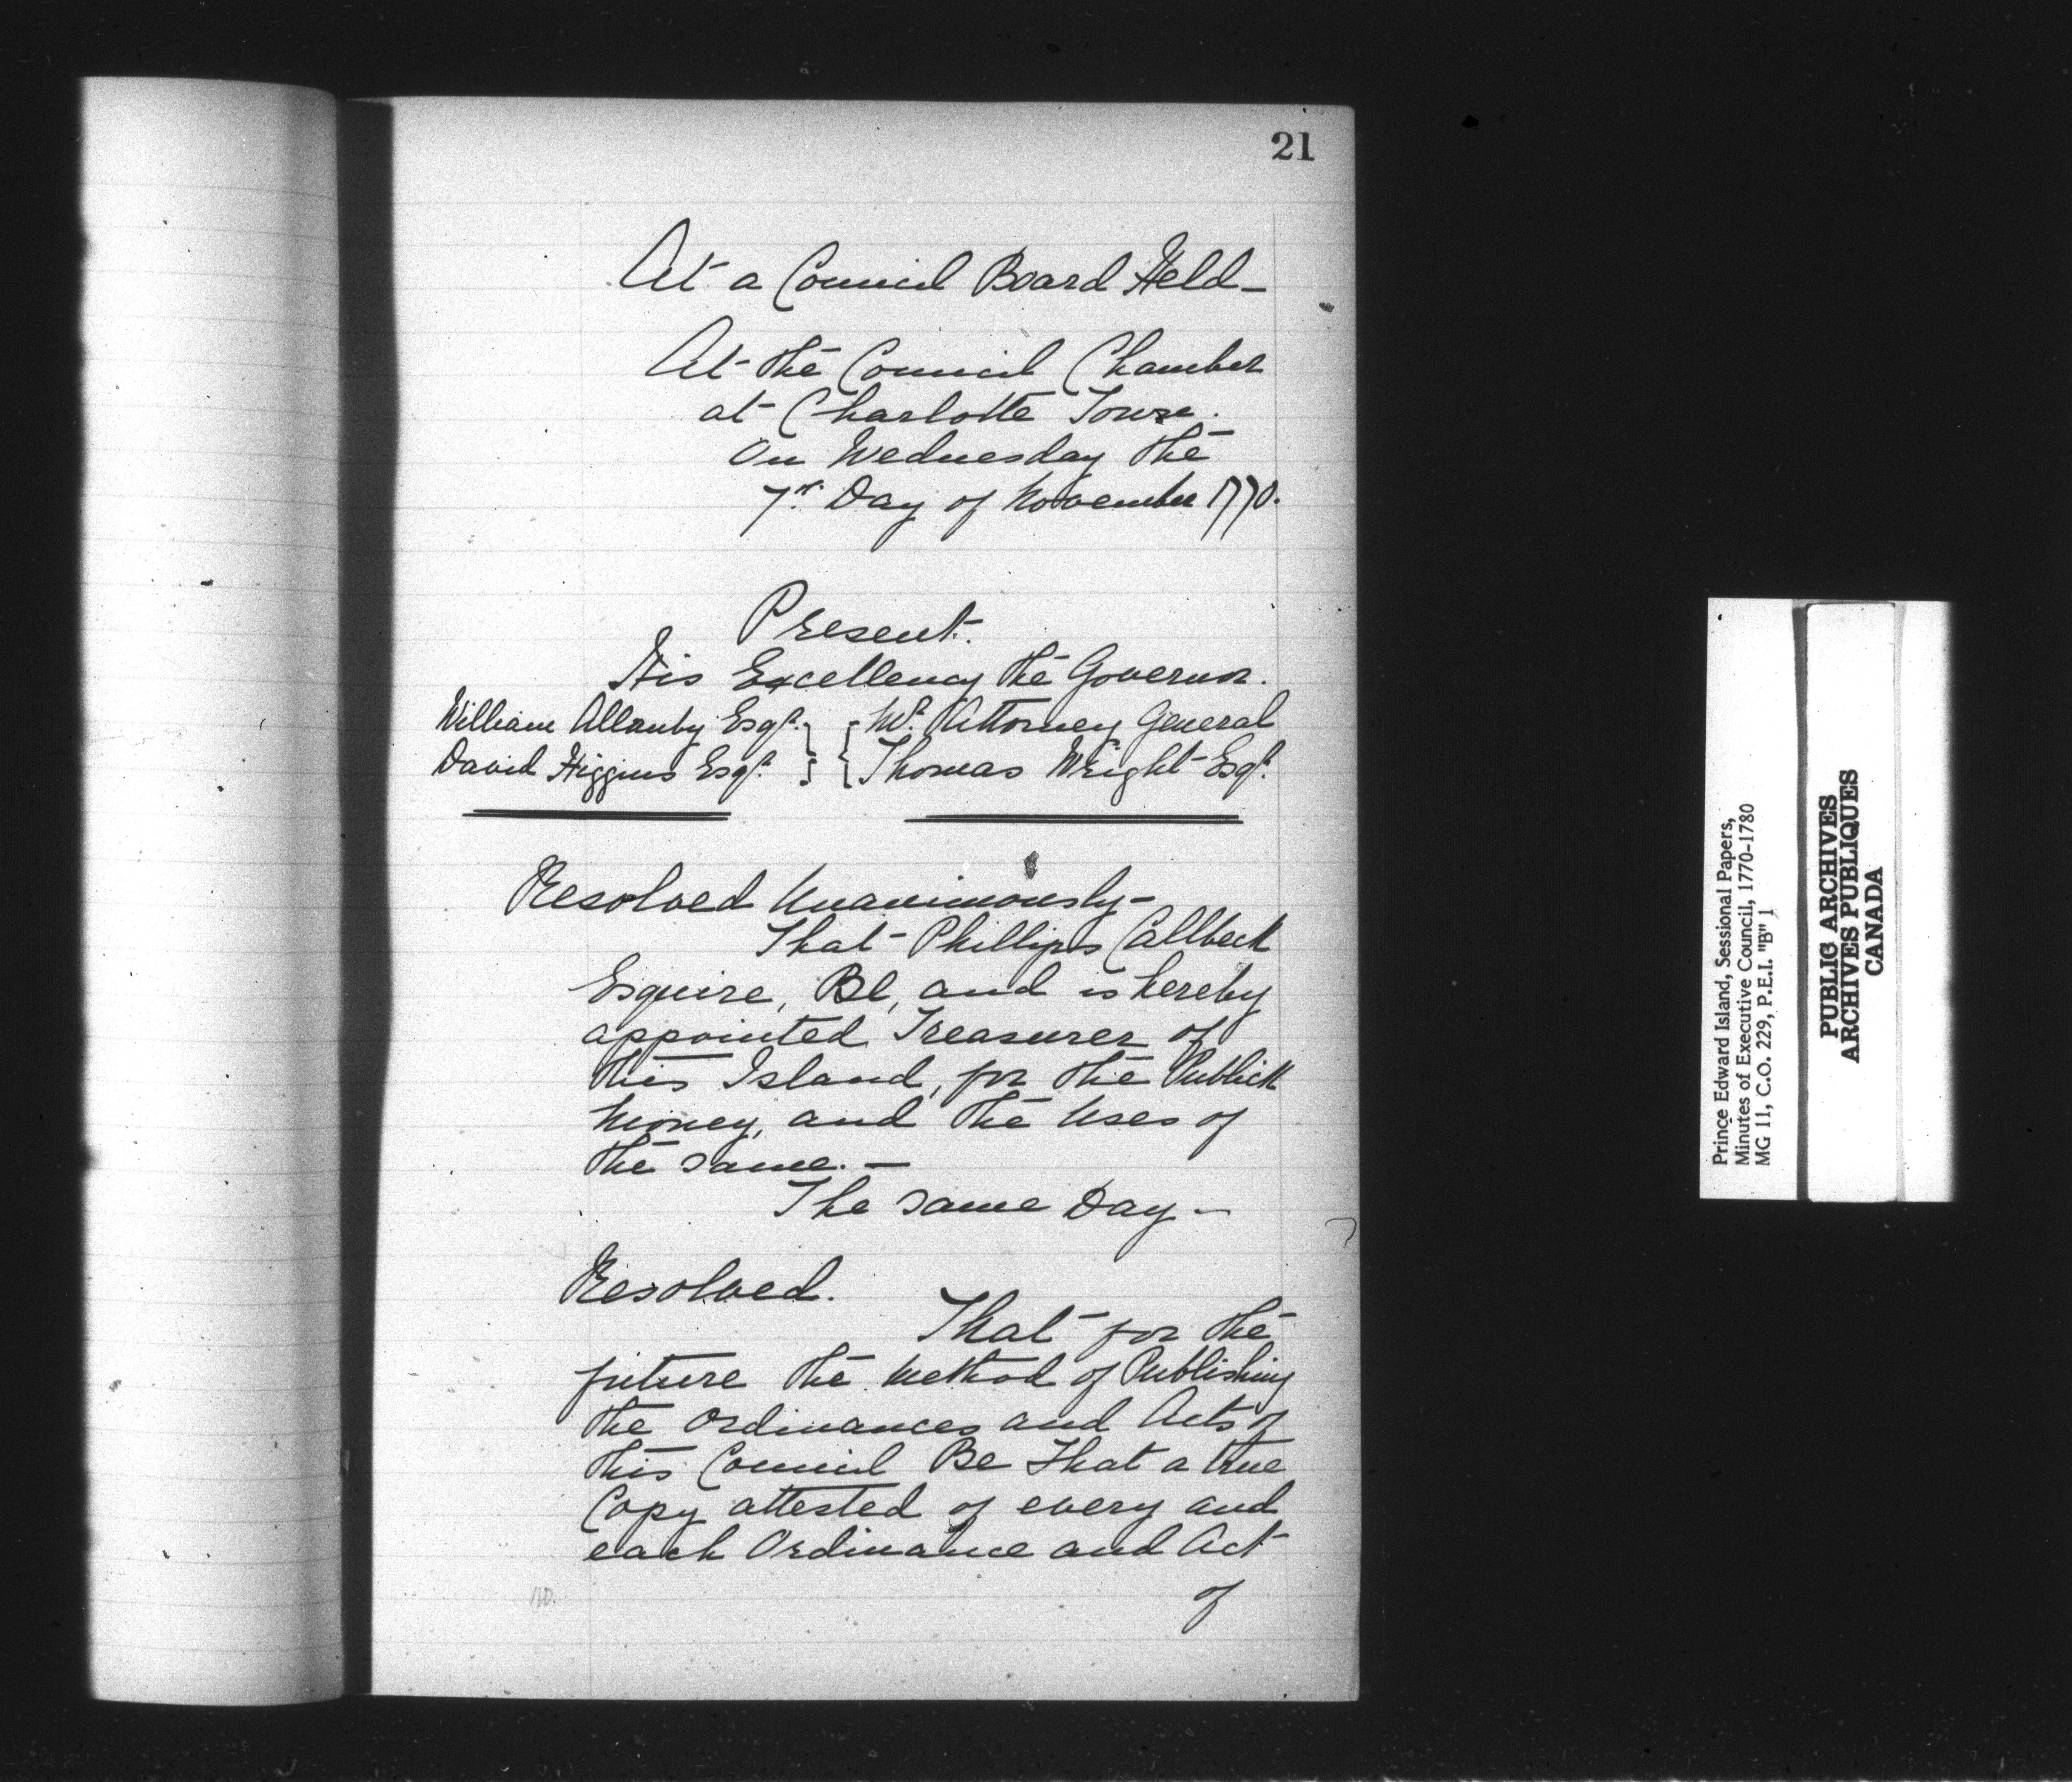 21
At a Council Board Held—
At the Council Chamber
at Charlotte Town.
On Wednesday the
7th Day of November 1770.
Present.
His Excellency the Governor.
William Allanby Esqr. } { Mr. Attorney General
David Higgins Esqr. } { Thomas Wright Esqr.
Resolved Unanimously—
That Phillips Callbeck
Esquire, Be, and is hereby
appointed Treasurer of
this Island, for the Publick
Money, and the Uses of
the same.—
The same Day—
Resolved.
That for the
future the Method of Publishing
the Ordinances and Acts of
this Council Be That a true
Copy attested of every and
each Ordinance and Act
of
Prince Edward Island, Sessional Papers,
Minutes of Executive Council, 1770-1780
MG 11, C.O. 229, P.E.I. "B" 1
PUBLIC ARCHIVES
ARCHIVES PUBLIQUES
CANADA